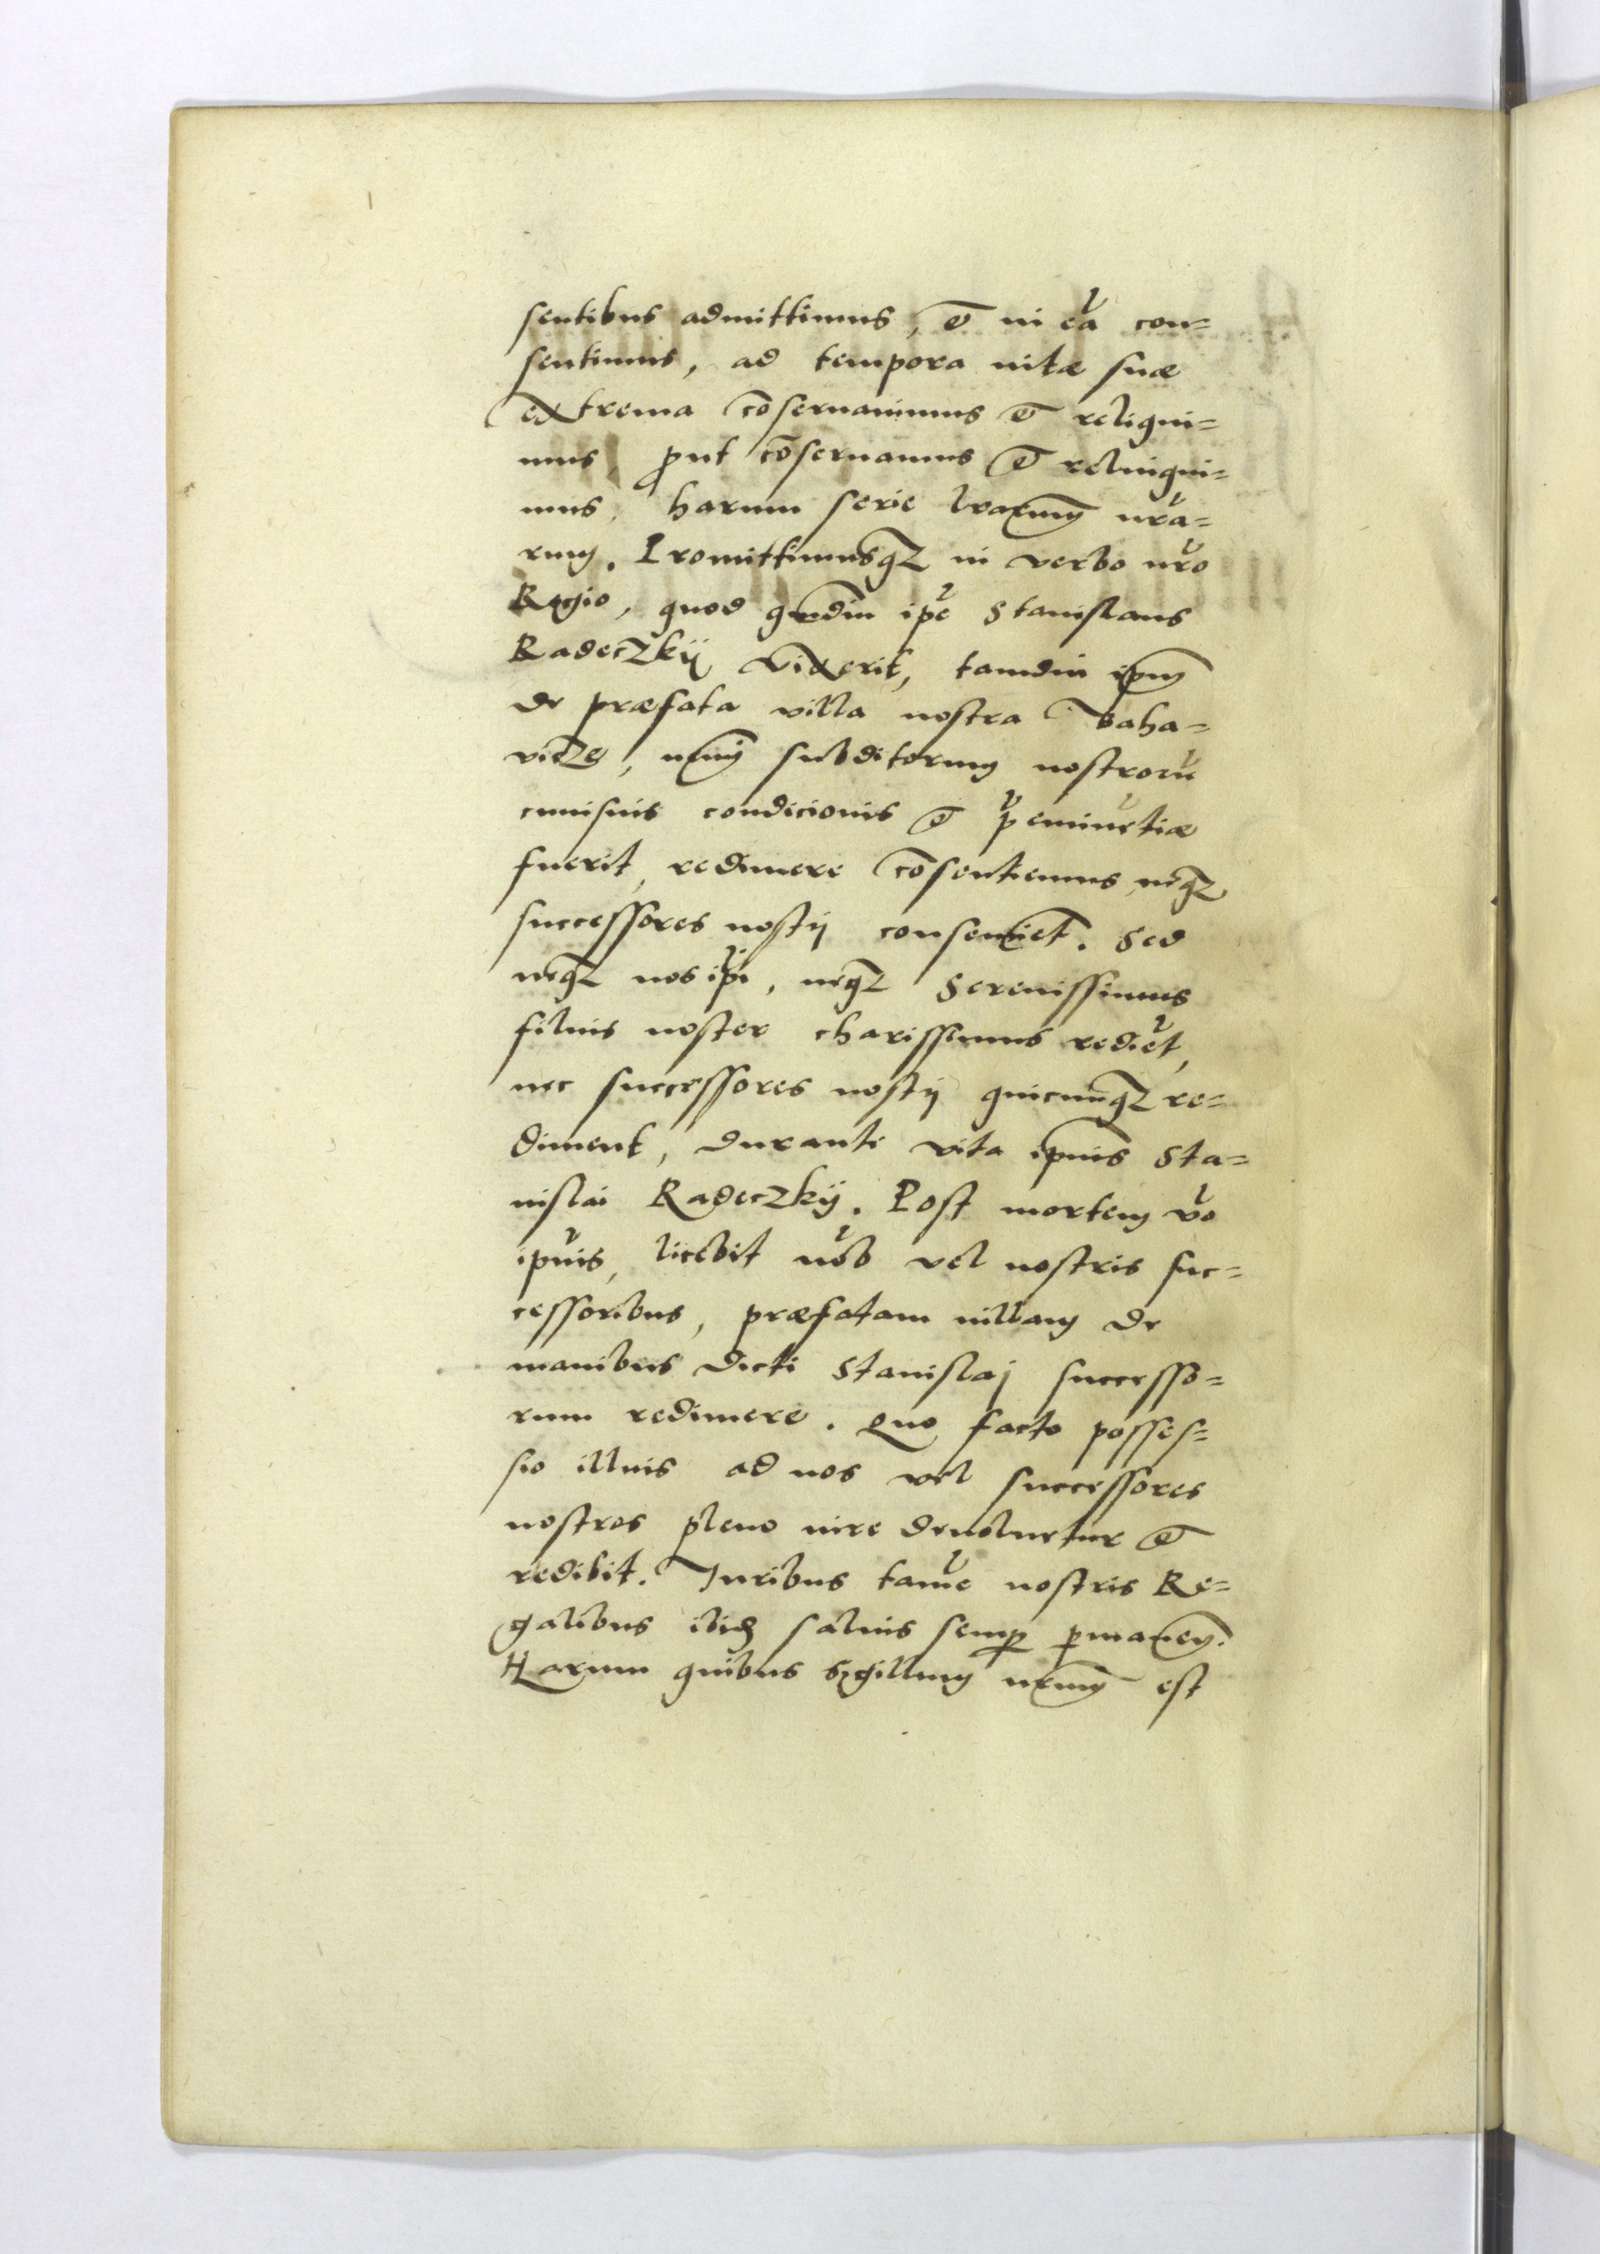 sentibus admittimus, et in eā con=
sentimus, ad tempora uitæ suæ
extrema cōseruauimus et reliqui=
mus, ꝓut cōseruamus et relinqui=
mus, harum serie lrarum nrā=
rum. Promittimusqꝫ in verbo nrō
Regio, quod quādiu ipē Stanislaus
Radeczkÿ vixerit, tamdiu ipm̄
de præfata villa nostra
subditorum nostrorū
cuiusuis condicionis et p̄eminētiæ
fuerit, redimere cōsentiemus, neqꝫ
successores nostrj consentiēt. Sed
neqꝫ nos ipī, neqꝫ Serenissimus
filius noster charissimus rediēt,
nec successores nostrj quicunqꝫ re=
diment, durante vita ipiūs Sta=
nislai Radeczkÿ. Post mortem vō
ipiūs, licebit nōb vel nostris suc=
cessoribus, præfatam uillam de
manibus dicti Stanislaj successo=
rum redimere. Quo facto posses=
sio illius ad nos vel successores
nostros pleno iure deuoluetur et
redibit. Iuribus tamē nostris Re=
galibus ibid saluis semꝑ ꝑmaneñ.
Harum quibus sigillum nrum est